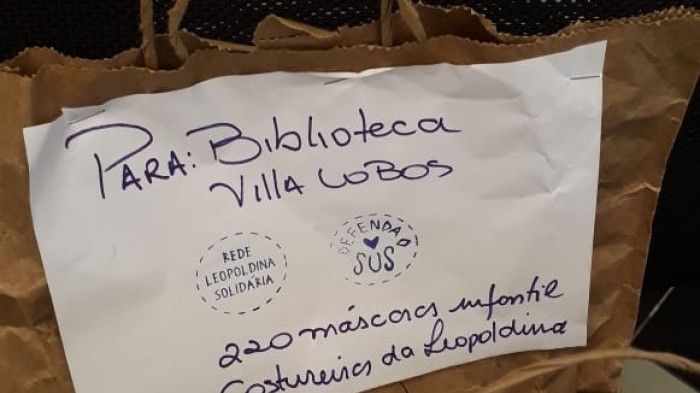 PARA: Biblioteca
Villa LOBOS
REDE
LEOPOLDINA
SOLIDÁRIA
DEFENDA O
SUS
220 máscaras infantil
Costureiras da Leopoldina